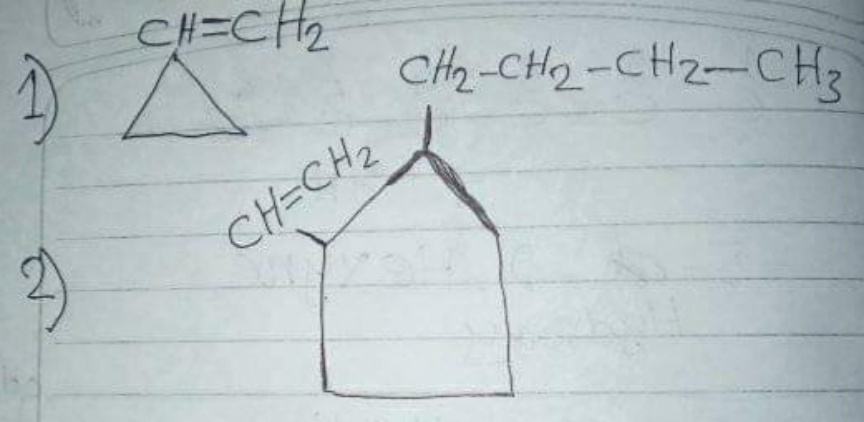 1) CH=CH2
CH2-CH2-CH2-CH3
CH=CH2
2)